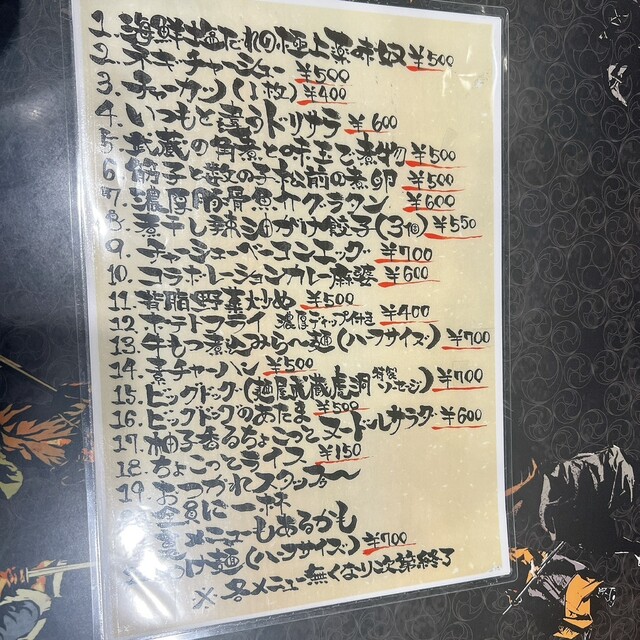 1. 海鮮塩だれの極上薬味奴 ¥500
2. ネギチャーシュー ¥500
3. チャーカツ(1枚) ¥400
4. いつもと違うトリサラ ¥600
5. 武蔵の角煮と味玉で煮物 ¥500
6. 筋子と数の子松前の煮卵 ¥500
7. 濃厚豚骨魚介グラタン ¥600
8. 煮干し辣油がけ餃子(3個) ¥550
9. チャーシューベーコンエッグ ¥700
10. コラボレーションカレー麻婆 ¥600
11. 背脂野菜炒め ¥500
12. ポテトフライ 濃厚ディップ付き ¥400
13. 牛もつ煮込みら〜麺(ハーフサイズ) ¥700
14. 素チャーハン ¥500
15. ビッグドック(麺屋武蔵虎洞特製ソーセージ) ¥700
16. ビッグドックのあたま ¥500
17. 柚子香るちょこっとヌードルサラダ ¥600
18. ちょこっとライス ¥150
19. おつかれスタッフ〜
全員に一杯
裏メニューもあるかも
つけ麺(ハーフサイズ) ¥700
※各メニュー無くなり次第終了